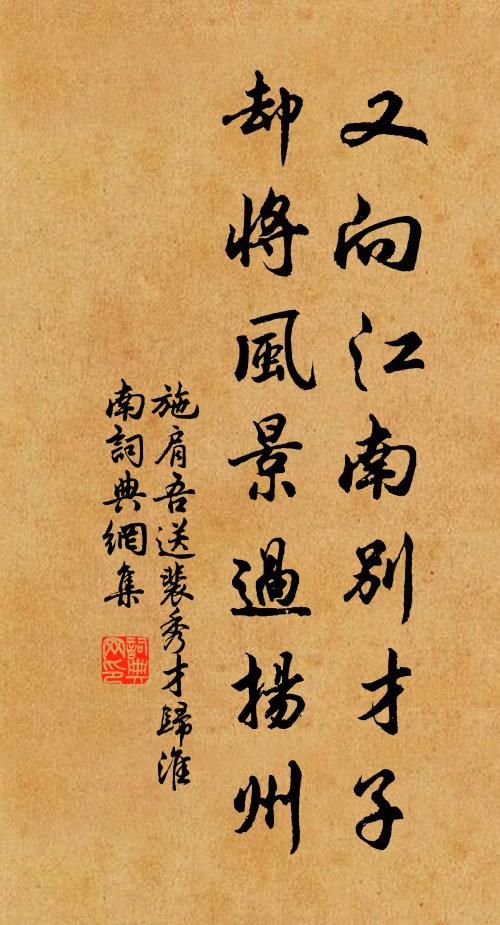 又向江南別才子
却將風景過揚州
施肩吾送裴秀才歸淮
南詞典網集
詞典
网印